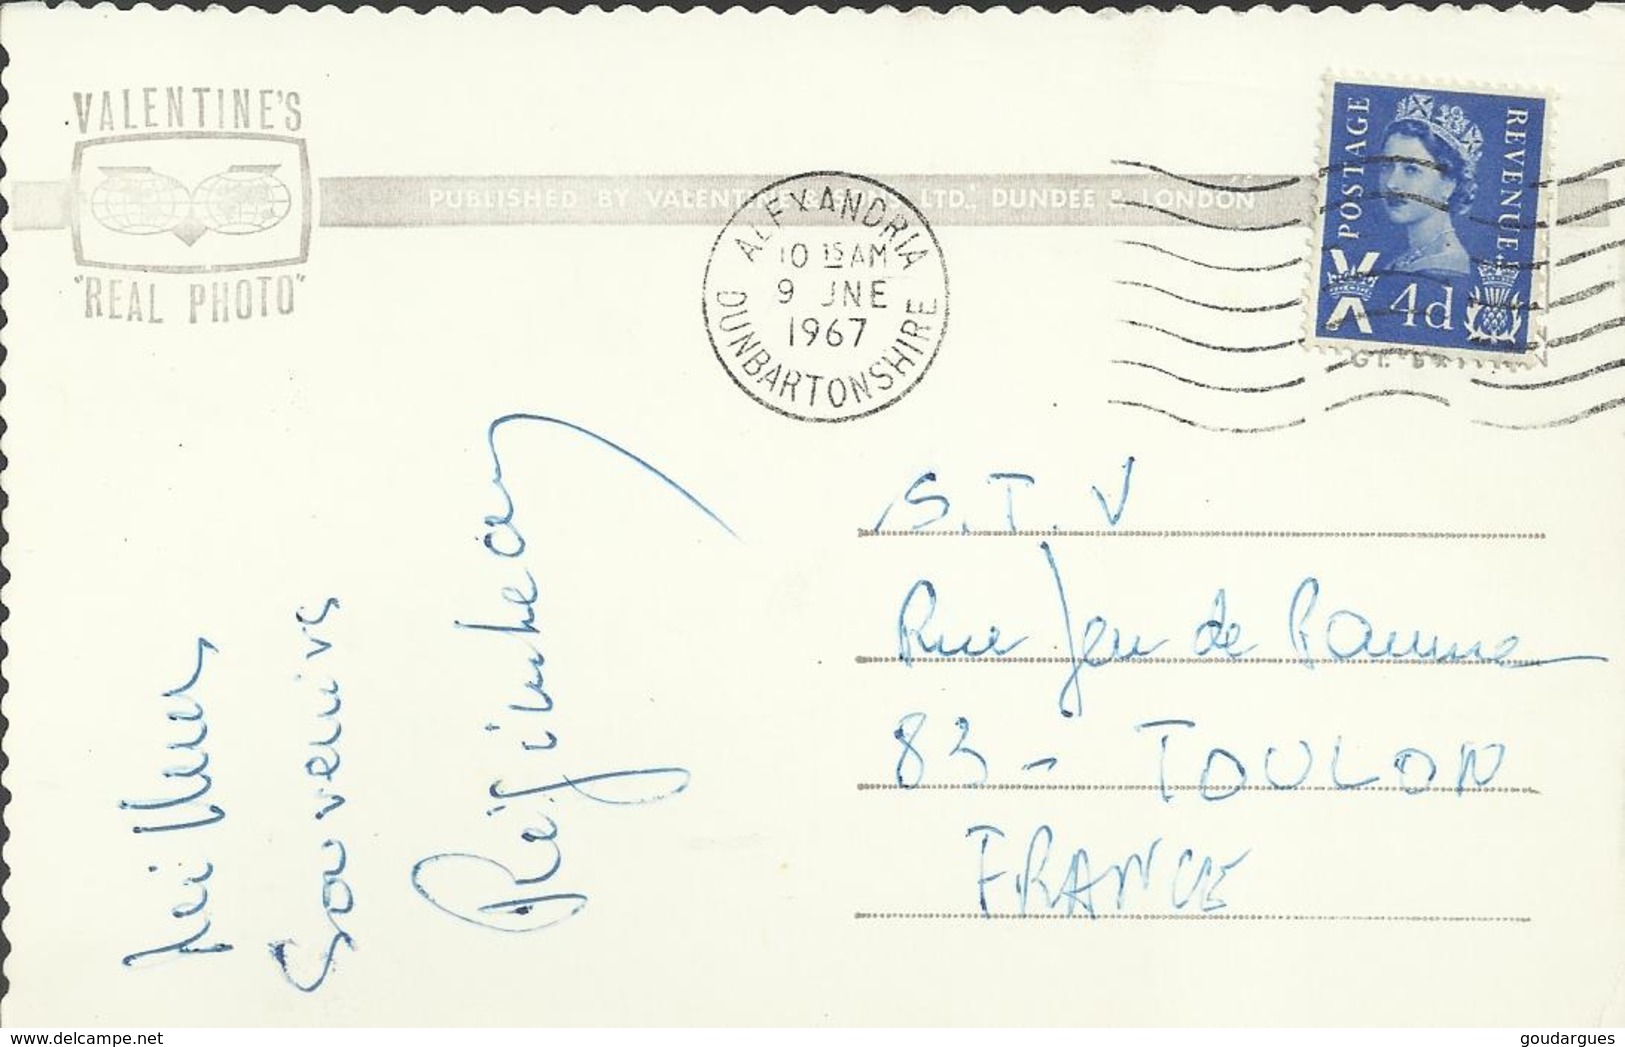 VALENTINE'S
"REAL PHOTO"
PUBLISHED BY VALENTINE & LTD., DUNDEE & LONDON
ALEXANDRIA
10 15 AM
9 JNE
1967
DUNBARTONSHIRE
POSTAGE
REVENUE
4d
S.T.V
Rue Jeu de Paume
83 - TOULON
FRANCE
Meilleurs
Souvenirs
www.delcampe.net
goudargues